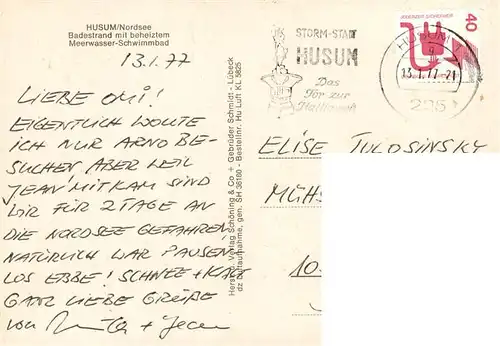 HUSUM/Nordsee
Badestrand mit beheiztem
Meerwasser-Schwimmbad
13.1.77
LIEBE OMI!
EIGENTLICH WOLLTE
ICH NUR ARNO BE-
SUCHEN ABER WEIL
JEAN MITKAM SIND
WIR FÜR 2 TAGE AN
DIE NORDSEE GEFAHREN,
NATÜRLICH WAR PAUSEN-
LOS EBBE! SCHNEE + KALT
GANZ LIEBE GRÜßE
von + Jean
Verlag Schöning & Co + Gebrüder Schmidt · Lübeck
gen. SH 36180 - Bestellnr. Hu Luft KL 8825
STORM-STADT
HUSUM
Das
Tor zur
HUSUM
13.1.77-21
JEDERZEIT SICHERHEIT
40
ELISE TULOSINSKY
MÜHS
10